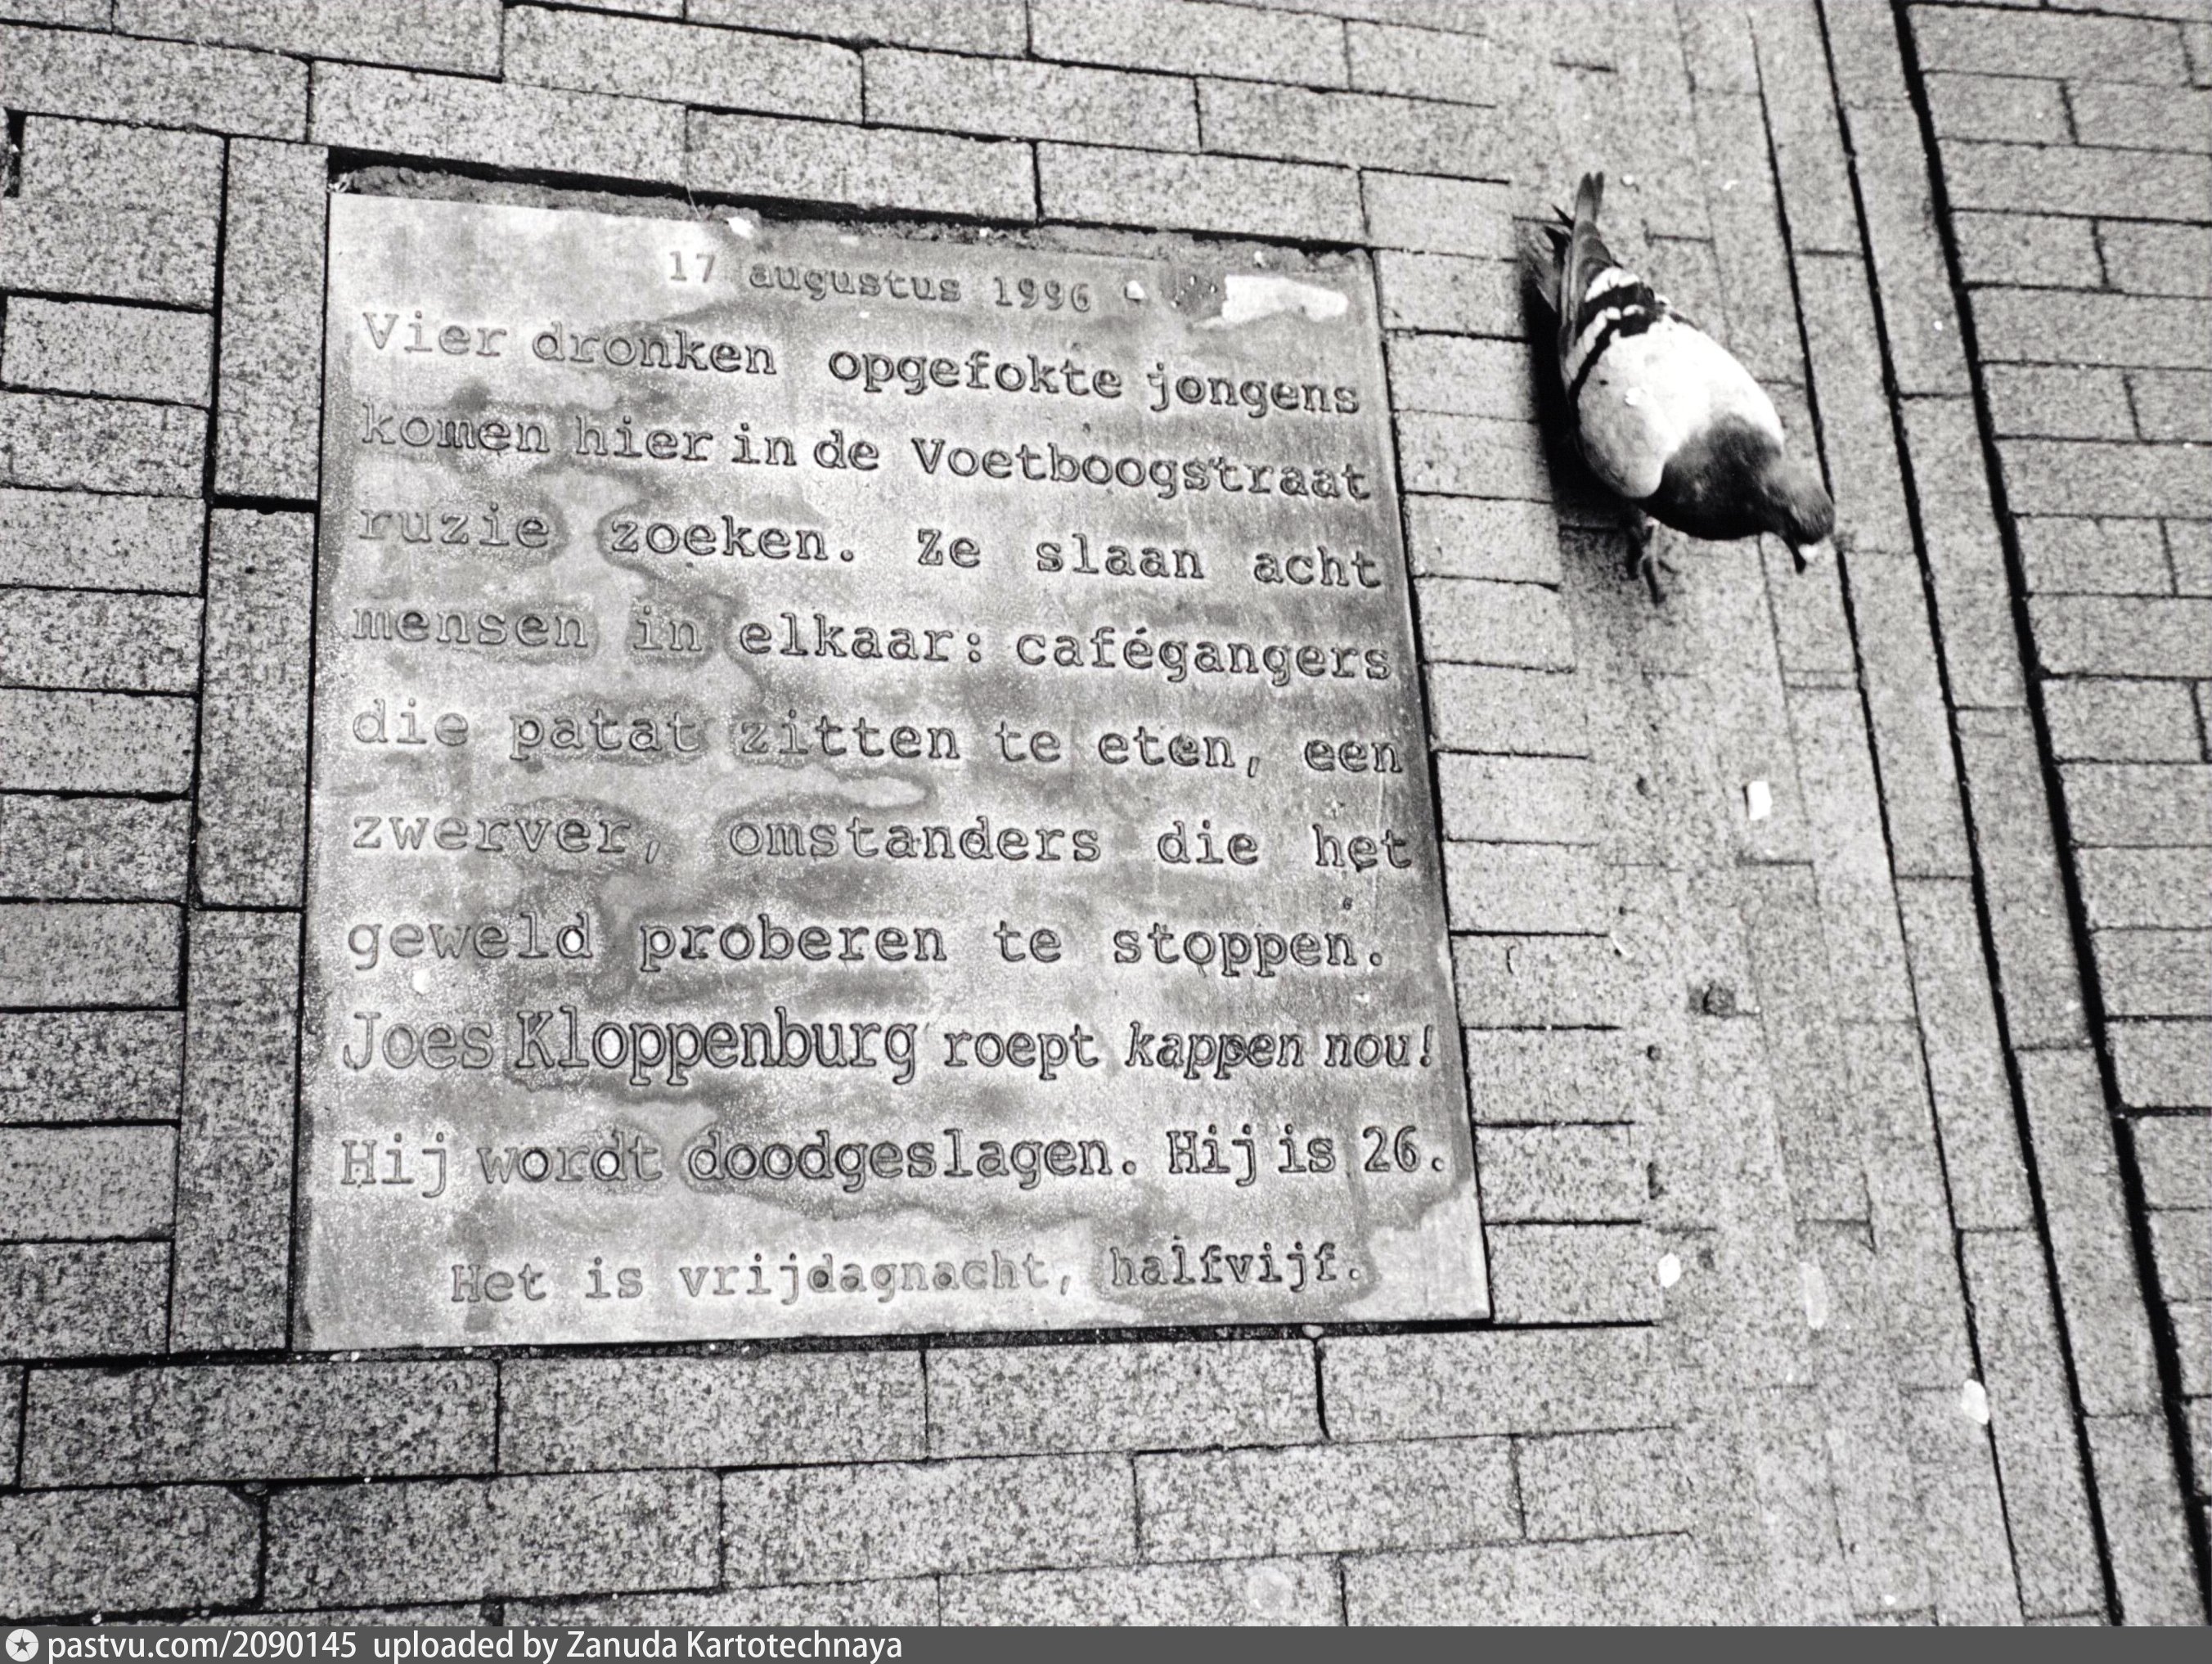 17 augustus 1996
Vier dronken opgefokte jongens
komen hier in de Voetboogstraat
ruzie zoeken. Ze slaan acht
mensen in elkaar: cafégangers
die patat zitten te eten, een
zwerver, omstanders die het
geweld proberen te stoppen.
Joes Kloppenburg roept kappen nou!
Hij wordt doodgeslagen. Hij is 26.
Het is vrijdagnacht, halfvijf.
pastvu.com/2090145 uploaded by Zanuda Kartotechnaya